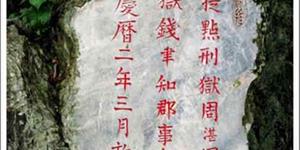 提點刑獄周湛
獄錢聿知郡事
慶曆二年三月